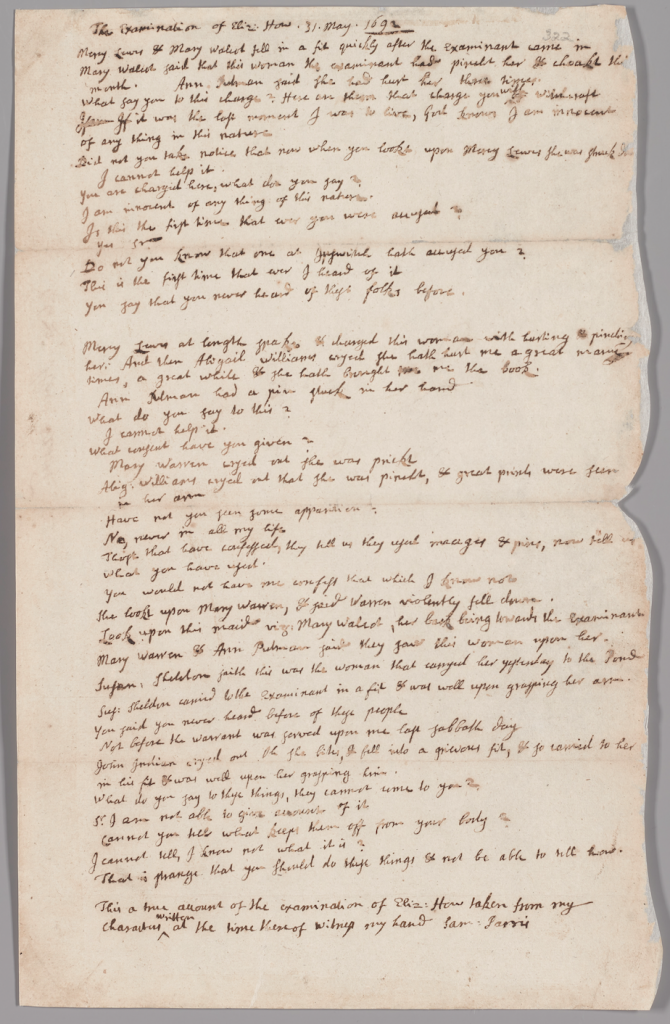 The Examination of Eliz: How. 31. May. 1692
322
Mercy Lewis & Mary Walcot fell in a fit quickly after the Examinant came in
Mary Walcot said that this woman the examinant had pincht her & choakt this
month. Ann Putman said she had hurt her three times.
What say you to this charge? Here are them that charge you with witchcraft
If it was the last moment I was to live, God knows I am innocent
of any thing in this nature
Did not you take notice that now when you lookt upon Mercy Lewis she was struck
I cannot help it.
You are charged here, what doe you say?
I am innocent of any thing of this nature.
Is this the first time that ever you were accused?
Yes Sr
Do not you know that one at Ipswitch hath accused you?
This is the first time that ever I heard of it
You say that you never heard of these folks before.
Mercy Lewis at length spake & charged this woman with hurting & pinching
her: And then Abigail Williams cryed she hath hurt me a great many
times, a great while & she hath brought me the book.
Ann Putman had a pin stuck in her hand
What do you say to this?
I cannot help it.
What consent have you given?
Mary Warren cryed out she was prickt
Abig: Williams cryed out that she was pincht, & great prints were seen
in her arm
Have not you seen some apparition?
No, never in all my life
Those that have confessed, they tell us they used images & pins, now tell us
What you have used.
You would not have me confess that which I know not
She lookt upon Mary Warren, & said Warren violently fell down.
Look upon this maid viz: Mary Walcot, her back being towards the Examinant
Mary Warren & Ann Putman said they saw this woman upon her.
Susan: Sheldon saith this was the woman that carryed her yesterday to the Pond
Sus: Sheldon carried to the Examinant in a fit & was well upon grasping her arm.
You said you never heard before of these people
Not before the warrant was served upon me last sabbath day
John Indian cryed out Oh she bites, & fell into a grievous fit, & so carried to her
in his fit & was well upon her grasping him.
What do you say to these things, they cannot come to you?
Sr I am not able to give account of it
Cannot you tell what keeps them off from your body?
I cannot tell, I know not what it is?
That is strange that you should do these things & not be able to tell how.
This a true account of the examination of Eliz: How taken from my
characters written at the time thereof witness my hand Sam: Parris